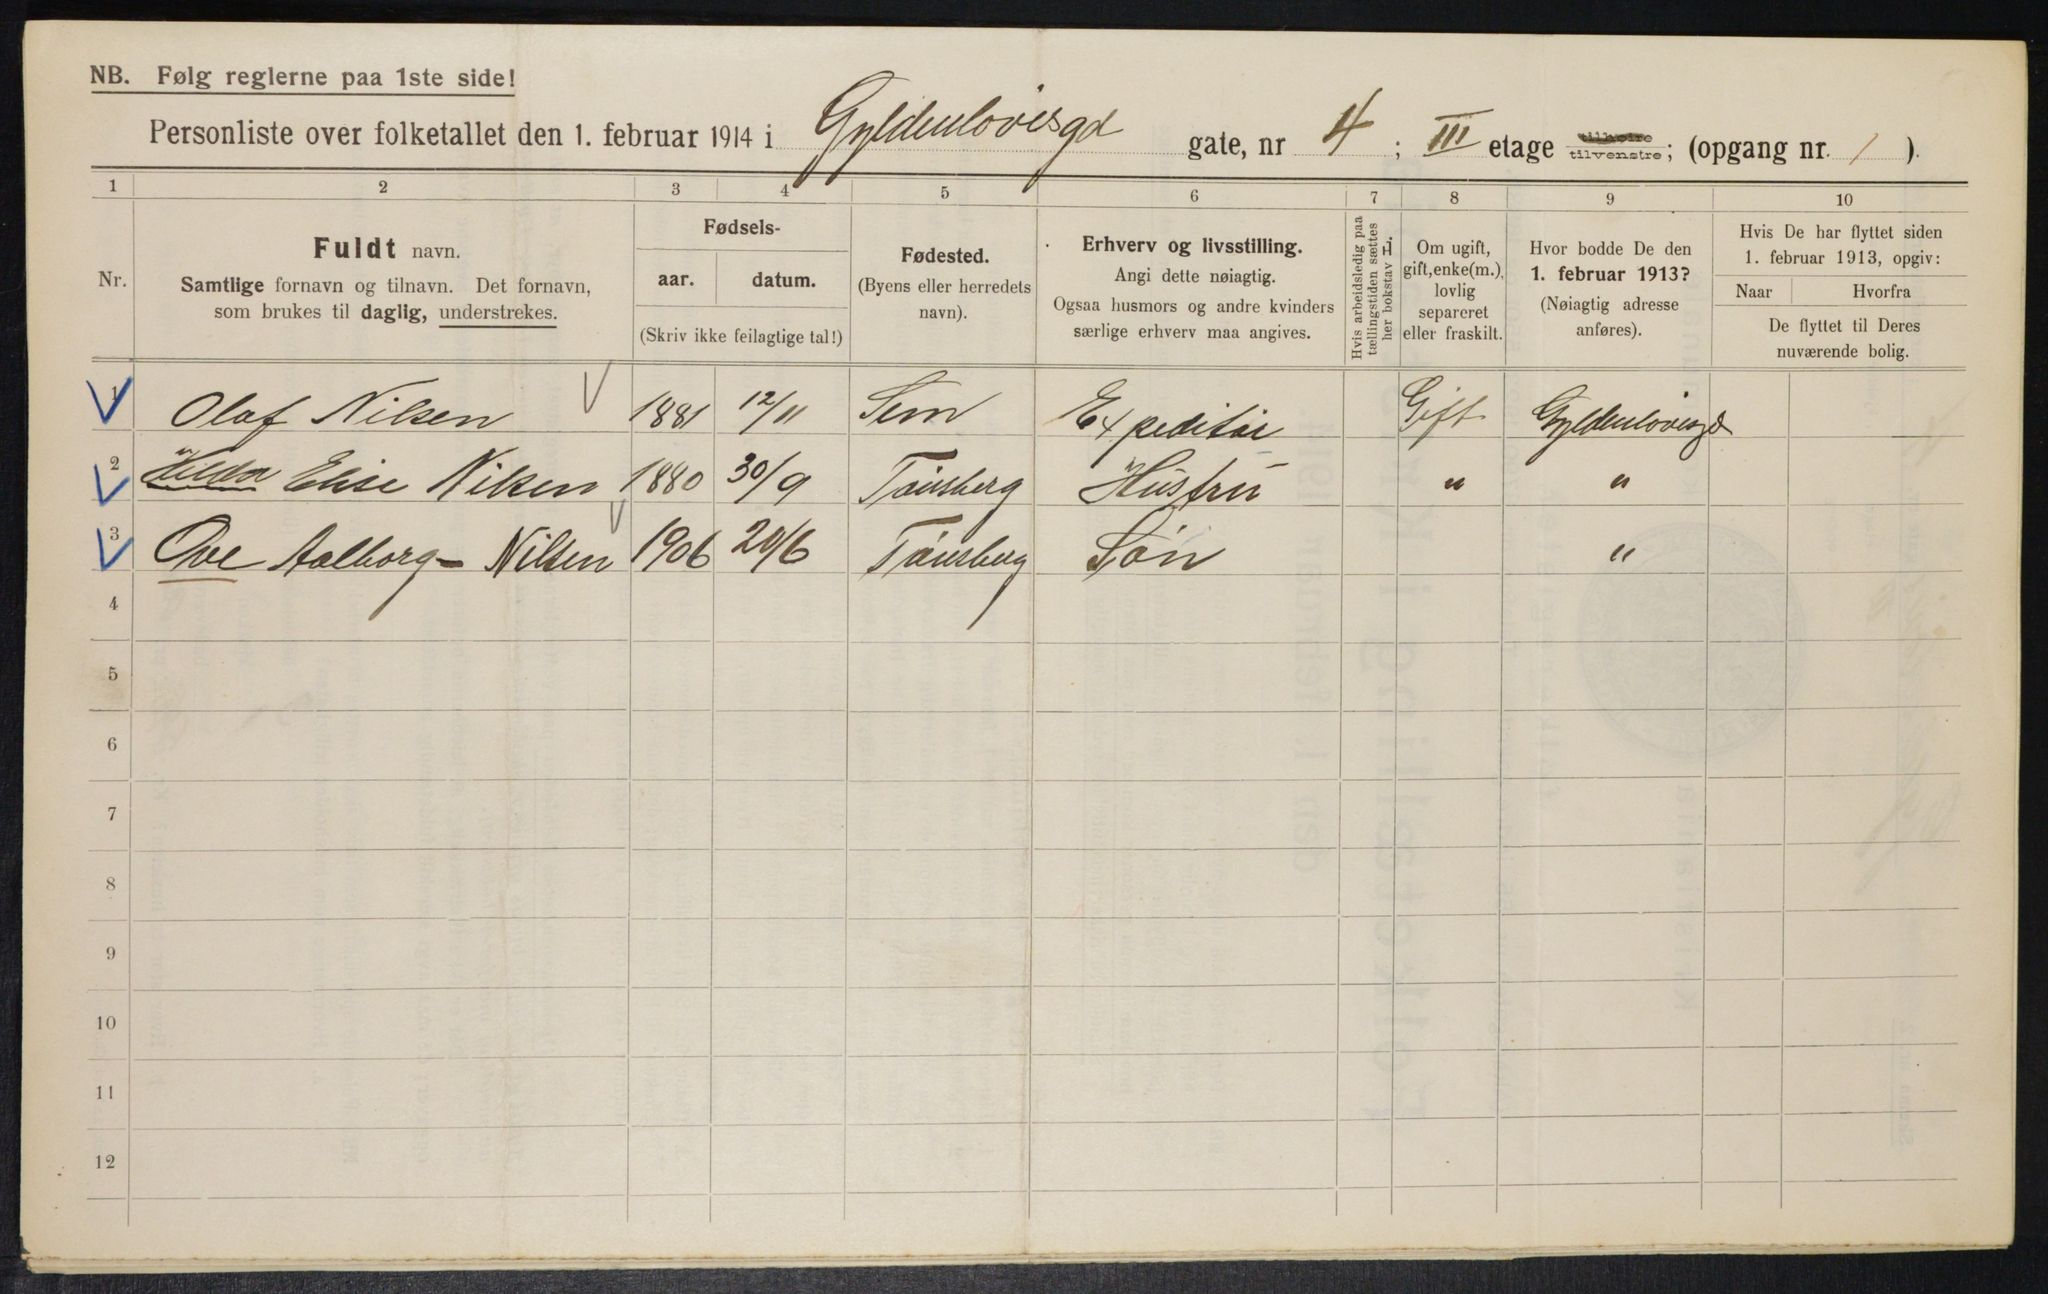 NB. Følg reglerne paa 1ste side!
Personliste over folketallet den 1. februar 1914 i Gyldenløvesgd gate, nr 4; III etage tilhøire tilvenstre; (opgang nr. 1 ).
1 2 3 4 5 6 7 8 9 10
Nr.
Fuldt navn.
Samtlige fornavn og tilnavn. Det fornavn,
som brukes til daglig, understrekes.
Fødsels-
aar. datum.
(Skriv ikke feilagtige tal!)
Fødested.
(Byens eller herredets
navn).
Erhverv og livsstilling.
Angi dette nøiagtig.
Ogsaa husmors og andre kvinders
særlige erhverv maa angives.
Hvis arbeidsledig paa
tællingstiden sættes
her bokstav L.
Om ugift,
gift, enke(m.),
lovlig
separeret
eller fraskilt.
Hvor bodde De den
1. februar 1913?
(Nøiagtig adresse
anføres).
Hvis De har flyttet siden
1. februar 1913, opgiv:
Naar Hvorfra
De flyttet til Deres
nuværende bolig.
1 Olaf Nilsen 1881 12/11 Sem Expeditør Gift Gyldenløvesgd
2 Hilda Elise Nilsen 1880 30/9 Tønsberg Hustru " "
3 Ove Aalborg-Nilsen 1906 20/6 Tønsberg Søn "
4
5
6
7
8
9
10
11
12